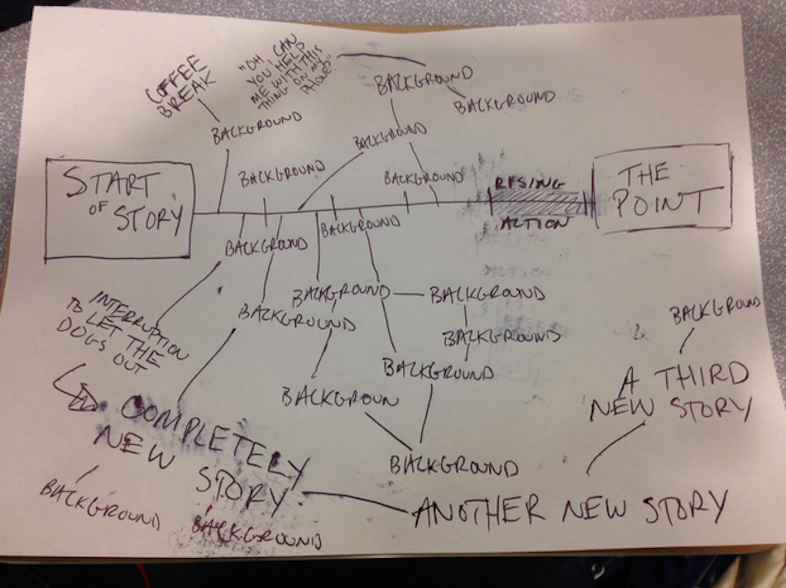 COFFEE
BREAK
"OH, CAN
YOU HELP
ME WITH THIS
THING ON MY
PHONE?"
BACKGROUND
BACKGROUND
BACKGROUND
BACKGROUND
START
OF
STORY
BACKGROUND
BACKGROUND
RISING
ACTION
THE
POINT
BACKGROUND
BACKGROUND
INTERRUPTION
TO LET THE
DOGS OUT
BACKGROUND
BACKGROUND
BACKGROUND
BACKGROUND
BACKGROUND
BACKGROUND
BACKGROUN
BACKGROUND
A THIRD
NEW STORY
COMPLETELY
NEW
STORY
BACKGROUND
BACKGROUND
BACKGROUND
ANOTHER NEW STORY